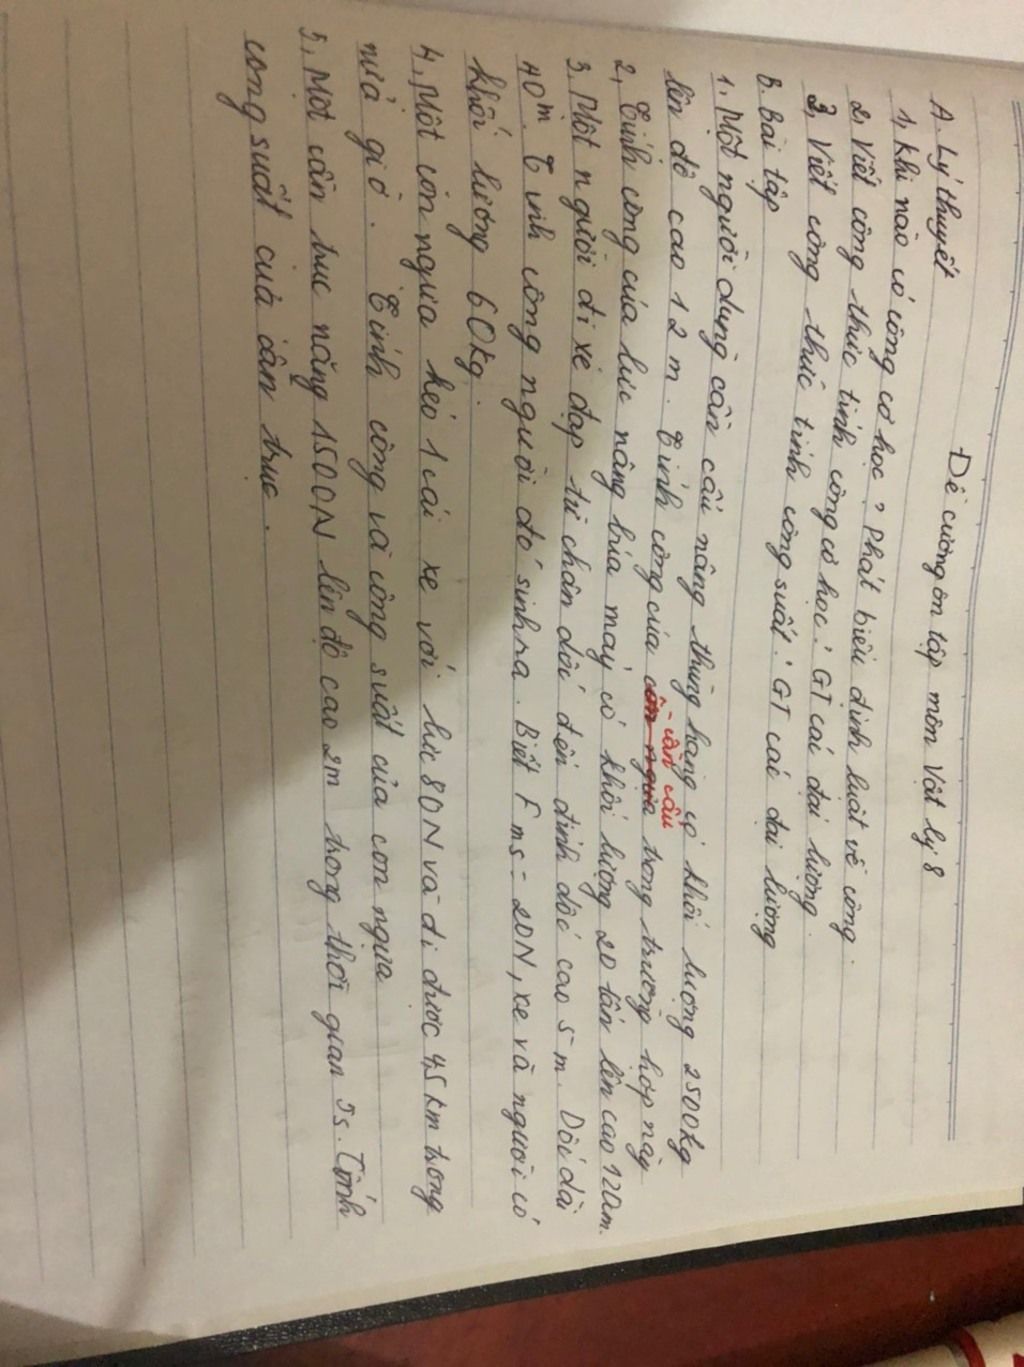 Đề cương ôn tập môn Vật lý 8
A. Lý thuyết
1, Khi nào có công cơ học? Phát biểu định luật về công.
2, Viết công thức tính công cơ học? GT các đại lượng.
3, Viết công thức tính công suất? GT các đại lượng
B. Bài tập
1, Một người dùng cần cẩu nâng thùng hàng có khối lượng 2500kg
lên độ cao 12m. Tính công của cần cẩu trong trường hợp này
2, Tính công của lực nâng búa máy có khối lượng 20 tấn lên cao 120m.
3, Một người đi xe đạp từ chân dốc đến đỉnh dốc cao 5m. Dốc dài
40m. Tính công người đó sinh ra. Biết Fms = 20N, xe và người có
khối lượng 60kg.
4, Một con ngựa kéo 1 cái xe với lực 80N và đi được 4,5km trong
nửa giờ. Tính công và công suất của con ngựa
5, Một cần trục nâng 1500N lên độ cao 2m trong thời gian 5s. Tính
công suất của cần trục.